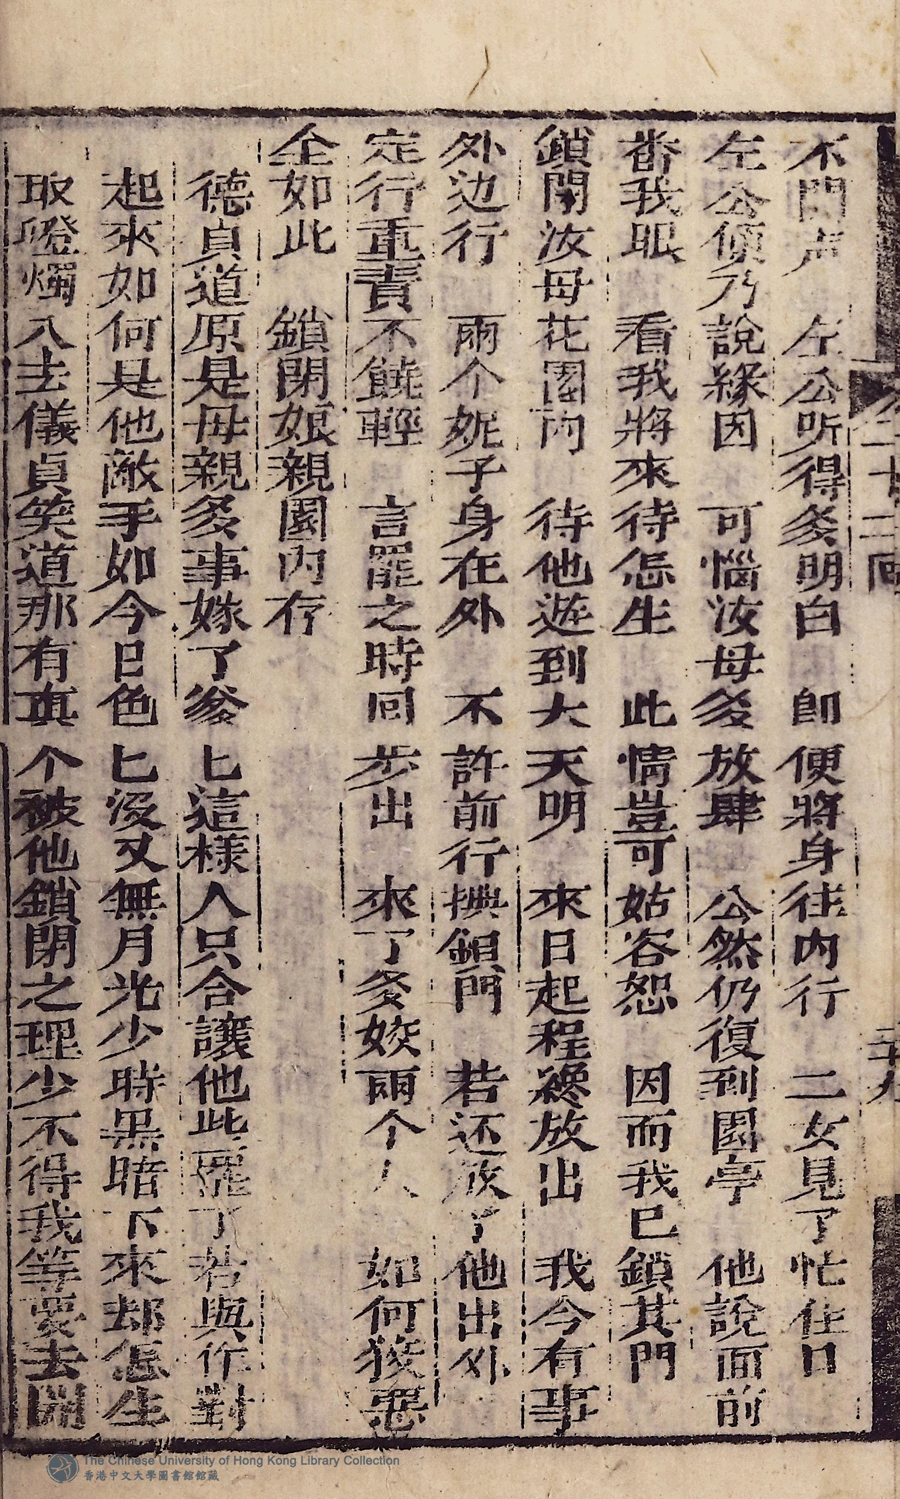 不聞声　左公听得多明白　即便將身往內行　二女見了忙住口
左公傾乃說緣因　可惱汝母多放肆　公然仍復到園亭　他說面前
番我眼　看我將來待怎生　此情豈可姑容恕　因而我已鎖其門
鎖閉汝母花園內　待他遊到大天明　來日起程纔放出　我今有事
外边行　兩个妮子身在外　不許前行換鎖門　若还放了他出外
定行重責不饒輕　言罷之時回步出　來了多姣兩个人　如何狡惡
全如此　鎖閉娘親園內存
德貞道原是母親多事嫁了爹匕這樣人只合讓他些罷了若與作對
起來如何是他敵手如今日色匕沒又無月光少時黑暗下來却怎生
取燈燭入去儀貞笑道那有真个被他鎖閉之理少不得我等要去開
二十二回
二十九
The Chinese University of Hong Kong Library Collection
香港中文大學圖書館館藏